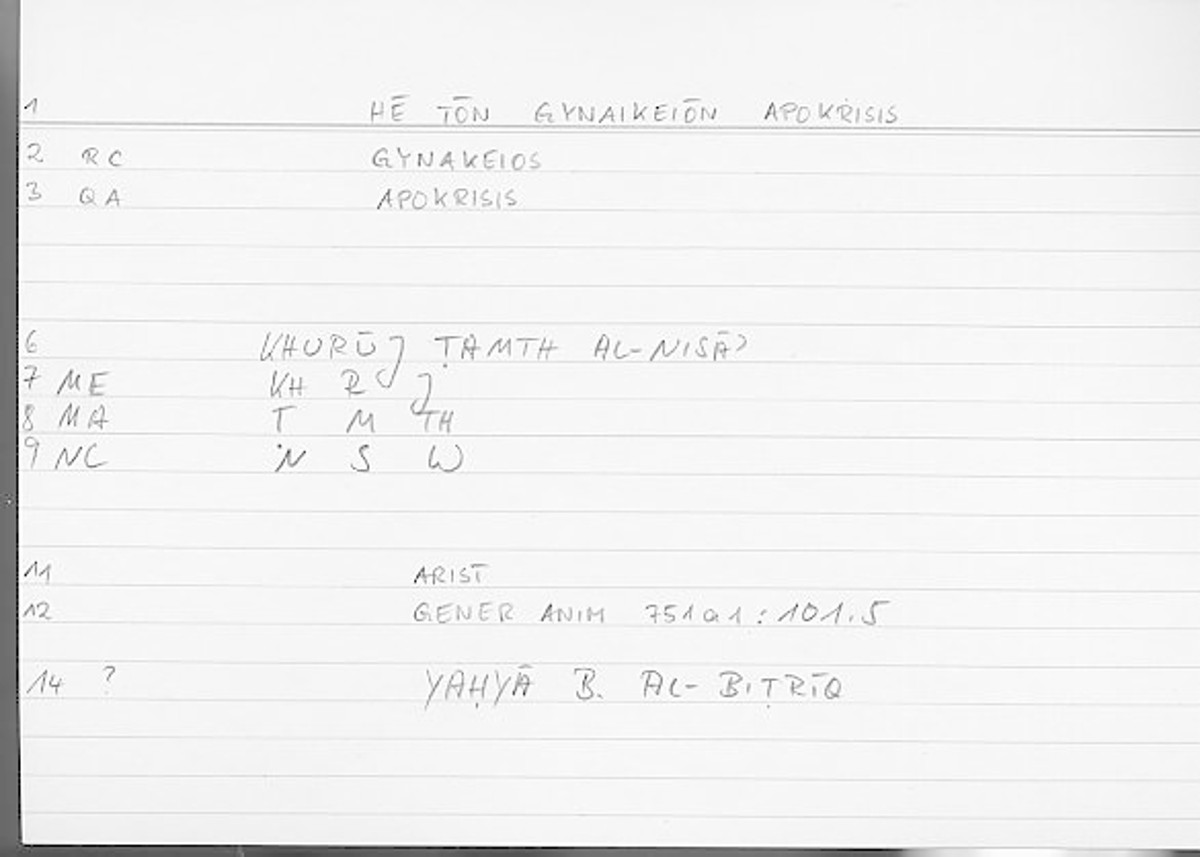 1 HĒ TŌN GYNAIKEIŌN APOKRISIS
2 RC GYNAKEIOS
3 QA APOKRISIS
6 KHURŪJ ṬAMTH AL-NISĀʾ
7 ME KH R J
8 MA T M TH
9 NC N S W
11 ARIST
12 GENER ANIM 751a1 : 101.5
14 ? YAḤYĀ B. AL-BIṬRĪQ